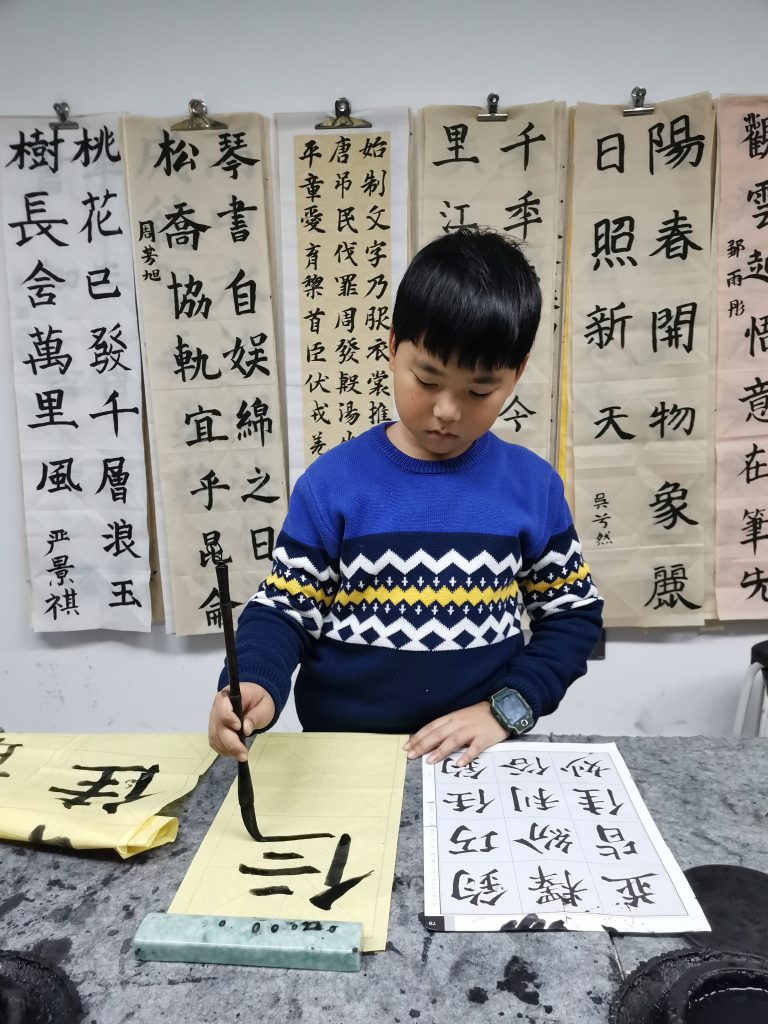 桃花已發千層浪玉
樹長舍萬里風
严景祺
琴書自娱綿之日
松喬協軌宜乎昆侖
周芳旭
始制文字乃服衣裳推
唐吊民伐罪周發殷湯
平章愛育黎首臣伏戎羌
千
今
里江
陽春開物象麗
日照新天
觀雲起悟意在筆先
鄒雨彤
任
鈞巧任釣
釋紛利俗
並皆佳妙
78